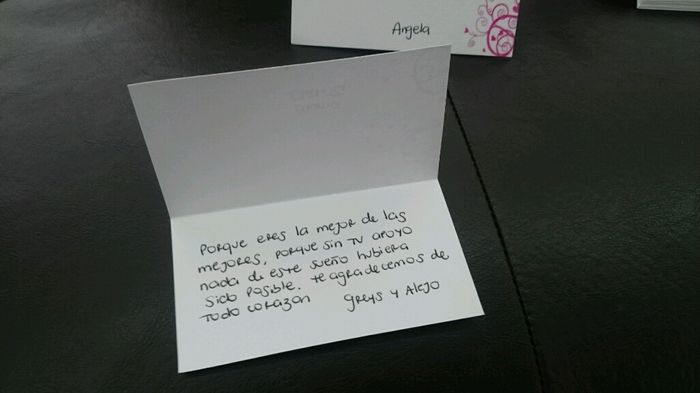 Angela
Porque eres la mejor de las
mejores, porque sin tu apoyo
nada de este sueño hubiera
sido posible. te agradecemos de
todo corazon greys y Alejo